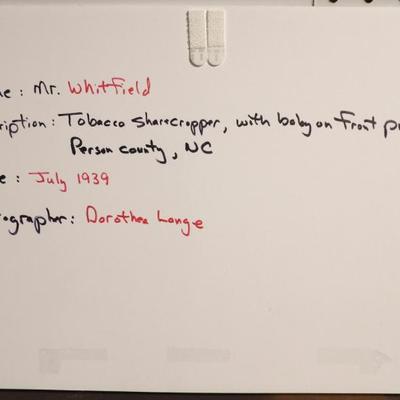 me : Mr. Whitfield
ription : Tobacco sharecropper, with baby on front p
Person county, NC
e : July 1939
ographer: Dorothea Lange